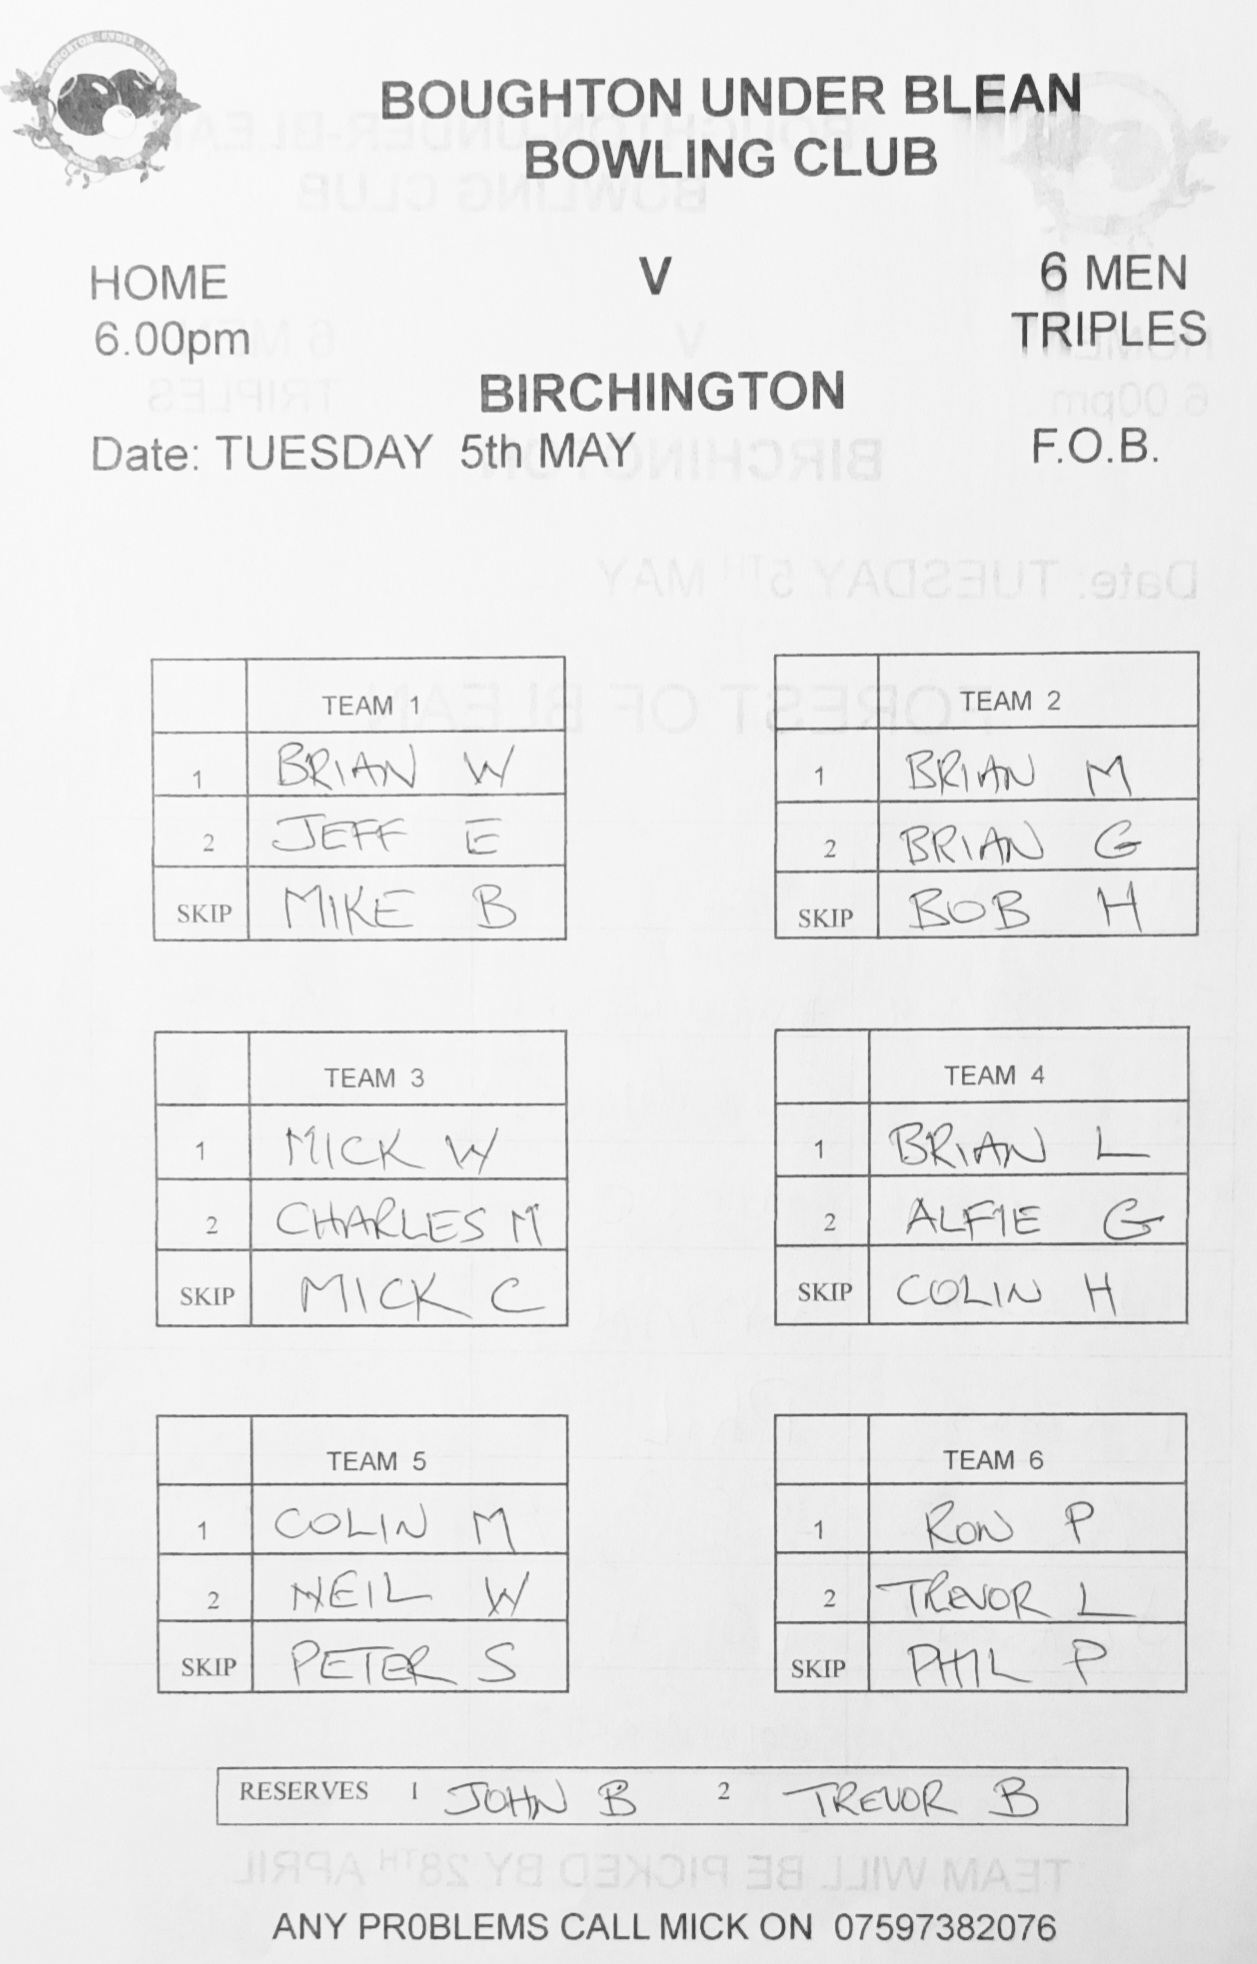 BOUGHTON UNDER BLEAN
BOWLING CLUB
HOME V 6 MEN
6.00pm TRIPLES
BIRCHINGTON
Date: TUESDAY 5th MAY F.O.B.
TEAM 1
1 BRIAN W
2 JEFF E
SKIP MIKE B
TEAM 2
1 BRIAN M
2 BRIAN G
SKIP BOB H
TEAM 3
1 MICK W
2 CHARLES M
SKIP MICK C
TEAM 4
1 BRIAN L
2 ALFIE G
SKIP COLIN H
TEAM 5
1 COLIN M
2 NEIL W
SKIP PETER S
TEAM 6
1 RON P
2 TREVOR L
SKIP PHIL P
RESERVES 1 JOHN B 2 TREVOR B
ANY PROBLEMS CALL MICK ON 07597382076